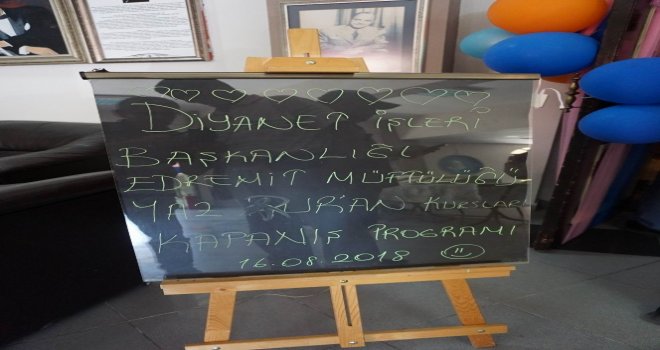 DİYANET İŞLERİ
BAŞKANLIĞI
EDREMİT MÜFTÜLÜĞÜ
YAZ KUR'AN KURSLARI
KAPANIŞ PROGRAMI
16.08.2018